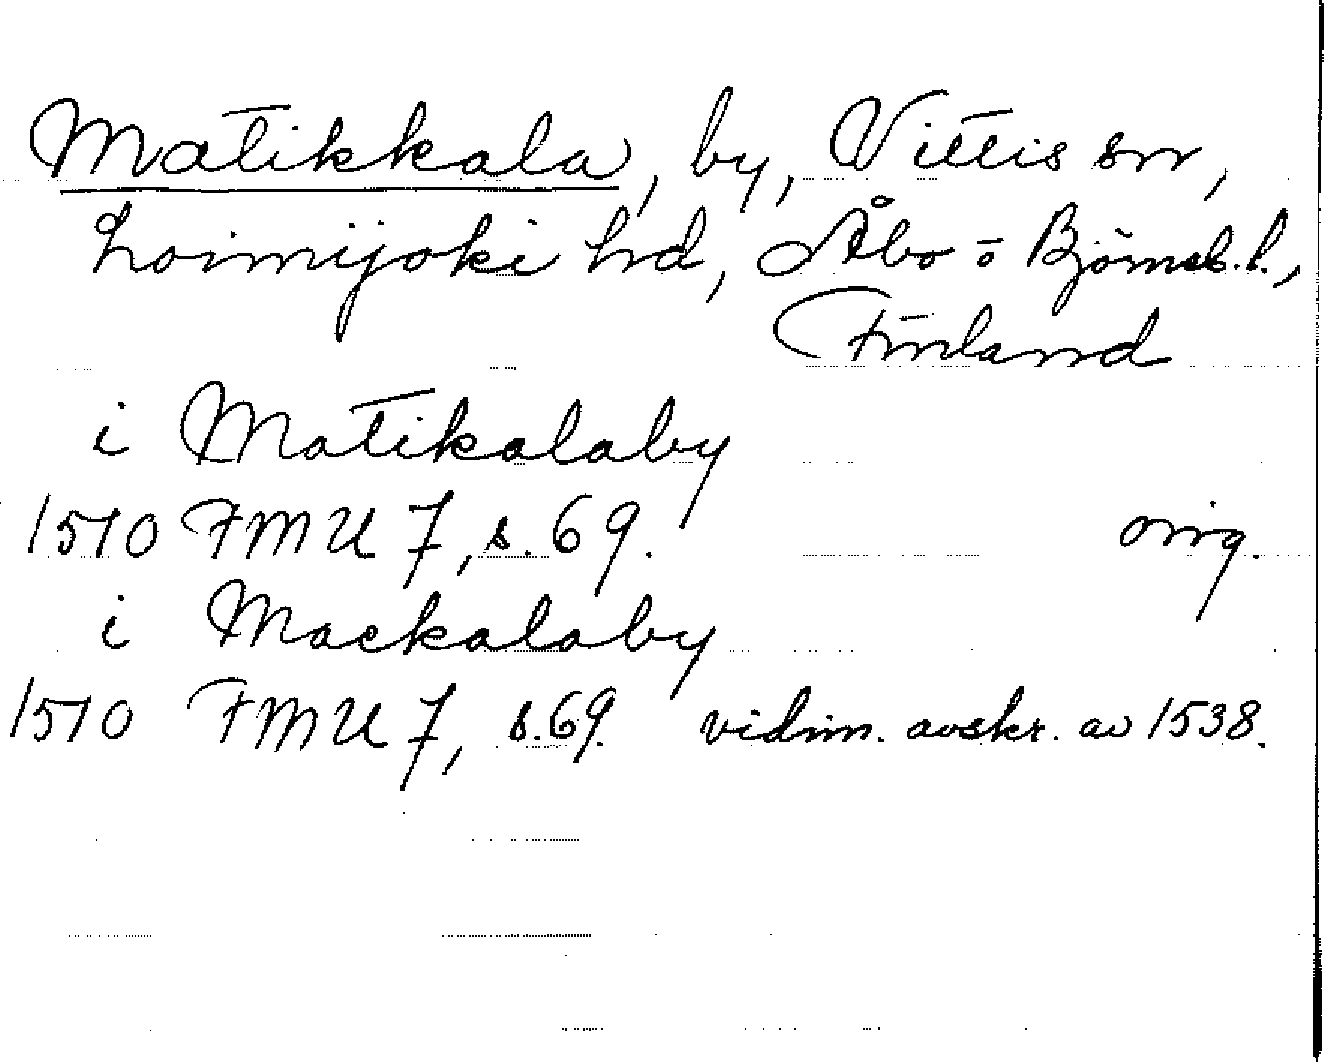 Matikkala, by, Vittis sn,
Loimijoki hd, Åbo o Björneb. l.,
Finland
i Matikalaby
1510 FMU 7, s. 69. orig.
i Mackalaby
1510 FMU 7, s. 69. vidim. avskr. av 1538.